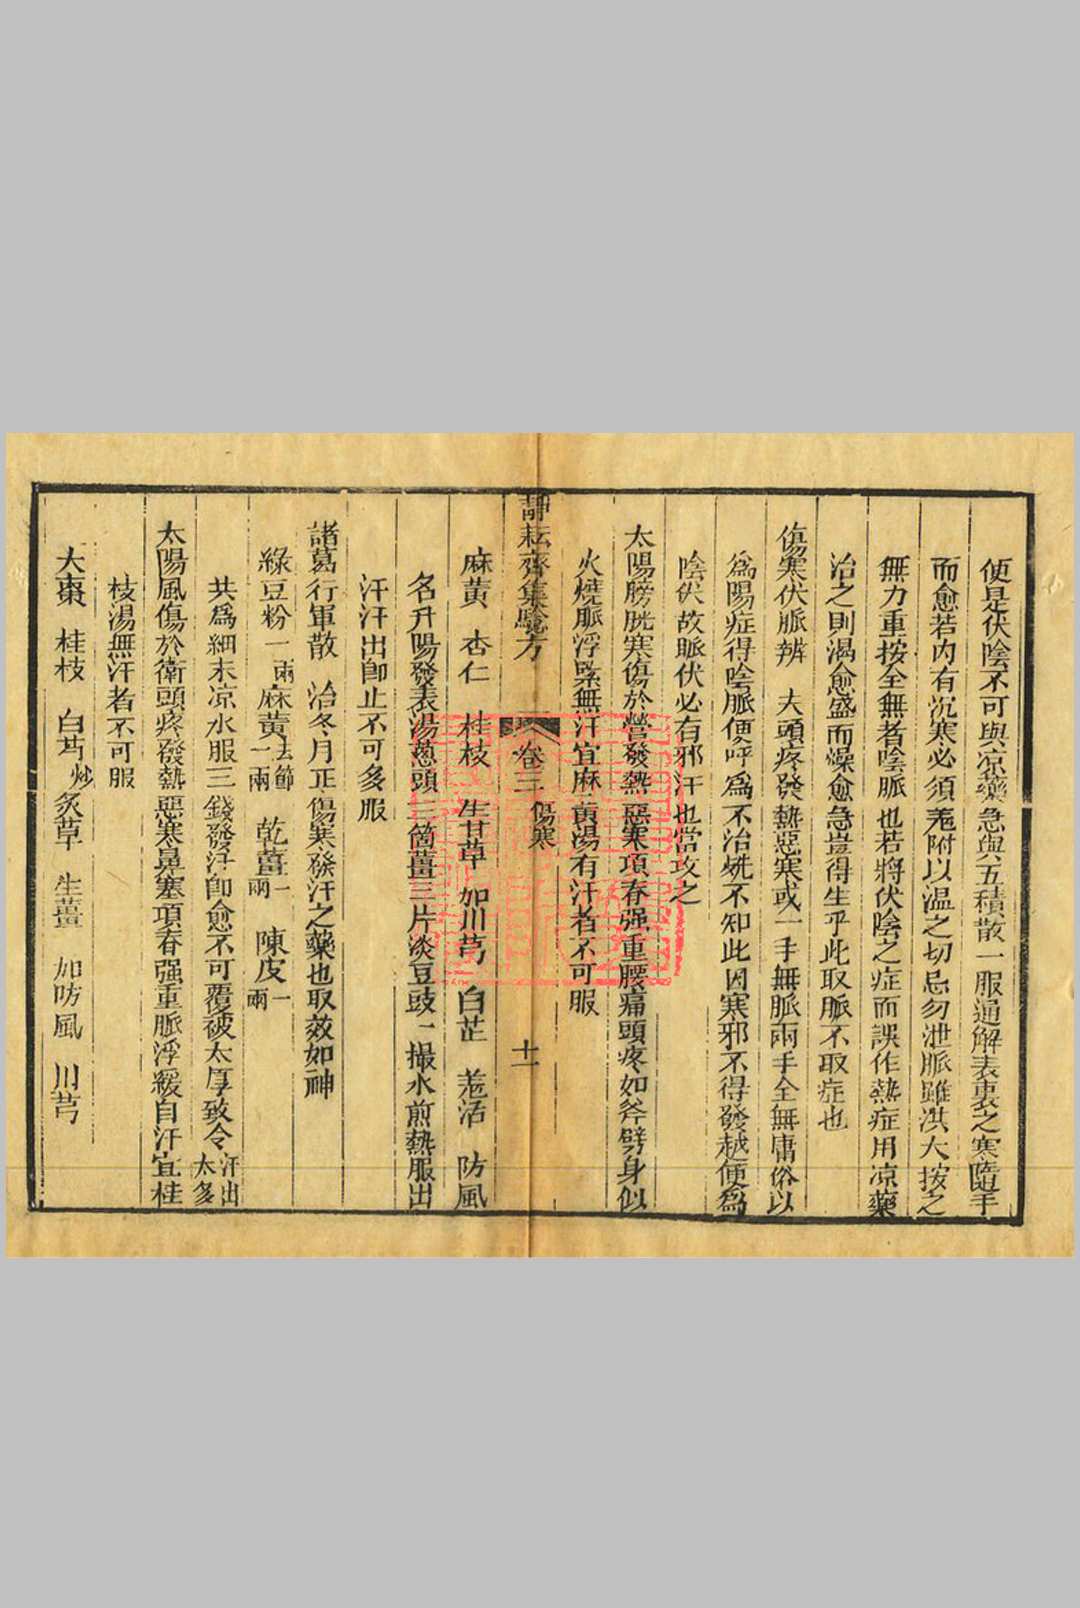 便是伏陰不可與凉藥急與五積散一服通解表裏之寒隨手
而愈若内有沉寒必須薑附以温之切忌勿泄脈雖洪大按之
無力重按全無者陰脈也若將伏陰之症而誤作熱症用凉藥
治之則渴愈盛而燥愈急豈得生乎此取脈不取症也
傷寒伏脈辨　夫頭疼發熱惡寒或一手無脈兩手全無庸俗以
爲陽症得陰脈便呼爲不治殊不知此因寒邪不得發越便爲
陰伏故脈伏必有邪汗也當攻之
太陽膀胱寒傷於營發熱惡寒項脊强重腰痛頭疼如斧劈身似
火燒脈浮緊無汗宜麻黃湯有汗者不可服
靜耘齋集驗方　卷三　傷寒　十一
麻黃　杏仁　桂枝　生甘草　加川芎　白芷　羗活　防風
名升陽發表湯葱頭三箇薑三片淡豆豉一撮水煎熱服出
汗汗出卽止不可多服
諸葛行軍散　治冬月正傷寒發汗之藥也取效如神
綠豆粉一兩　麻黃去節一兩　乾薑一兩　陳皮一兩
共爲細末凉水服三錢發汗卽愈不可覆被太厚致令汗出太多
太陽風傷於衛頭疼發熱惡寒鼻塞項脊强重脈浮緩自汗宜桂
枝湯無汗者不可服
大棗　桂枝　白芍炒　炙草　生薑　加防風　川芎